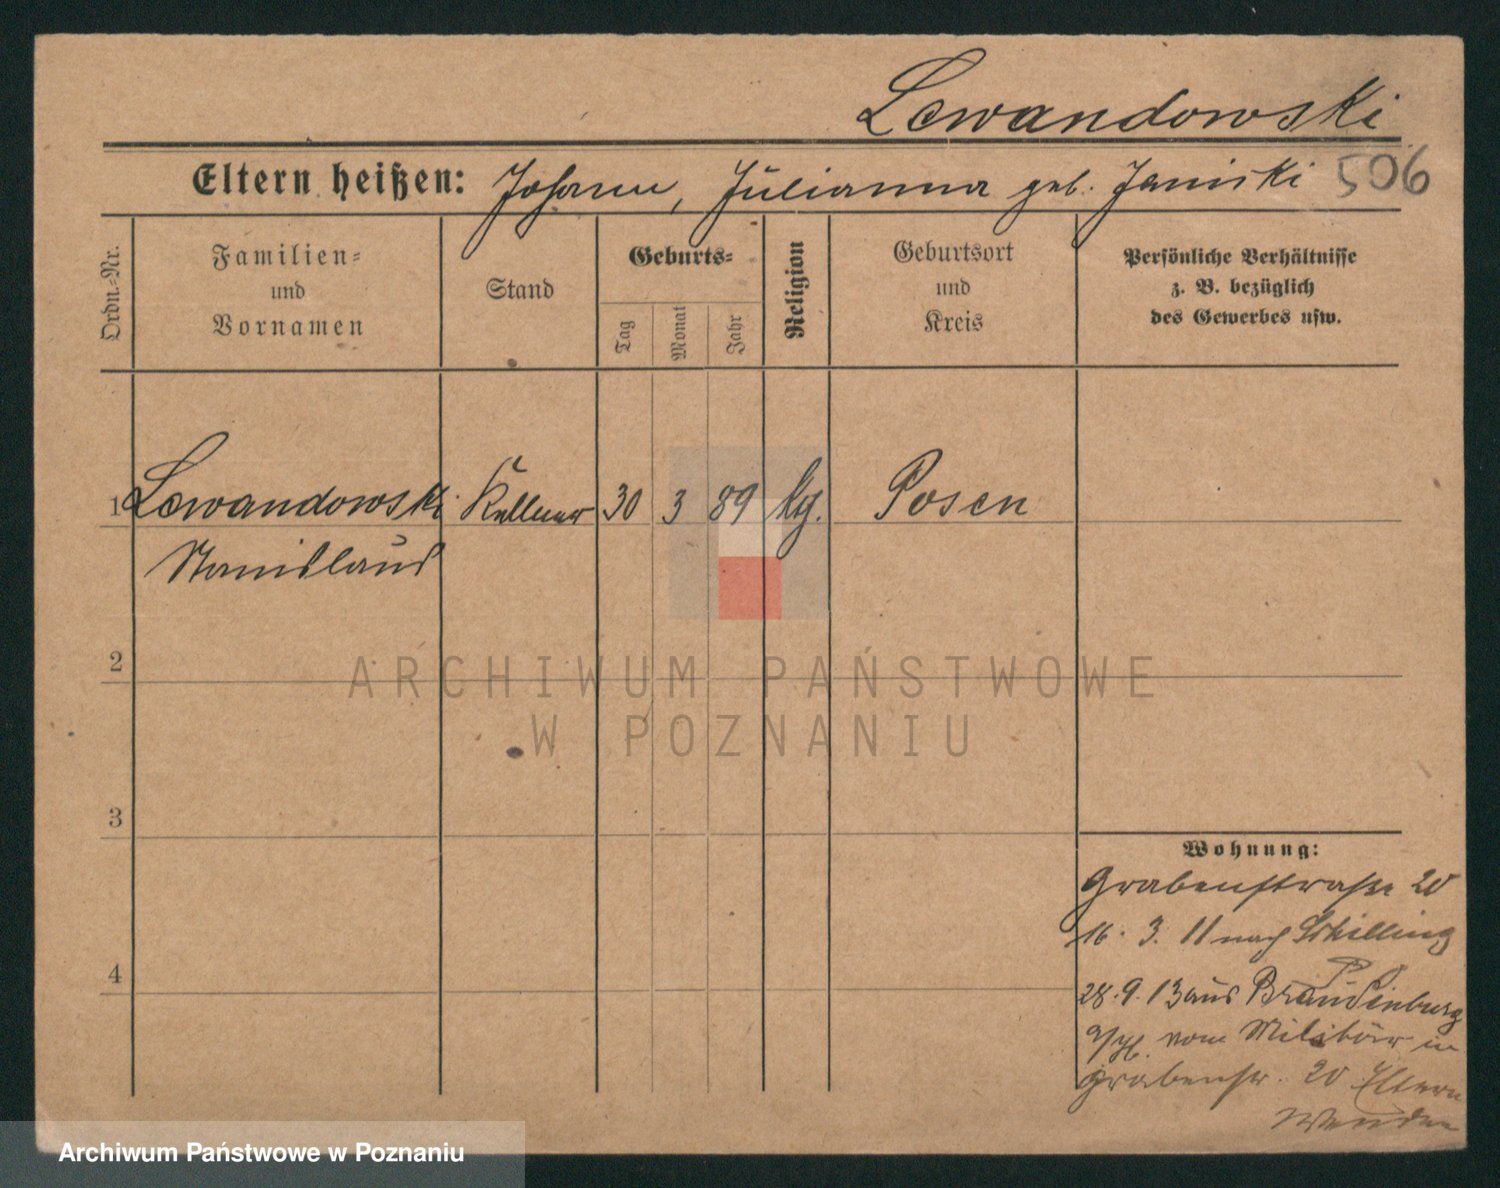 Lewandowski
Eltern heißen: Johann, Julianna geb. Janiski 506
Ordn.-Nr.
Familien-
und
Vornamen
Stand
Geburts-
Tag
Monat
Jahr
Religion
Geburtsort
und
Kreis
Persönliche Verhältnisse
z. B. bezüglich
des Gewerbes usw.
1 Lewandowski Kellner 30 3 89 kg. Posen
Stanislaus
2
ARCHIWUM PAŃSTWOWE
W POZNANIU
3
Wohnung:
Grabenstraße 20
16. 3. 11 nach Schilling
28. 9. 13 aus Brandenburg
a/H. vom Militär in
Grabenstr. 20 Eltern
Wenden
4
Archiwum Państwowe w Poznaniu